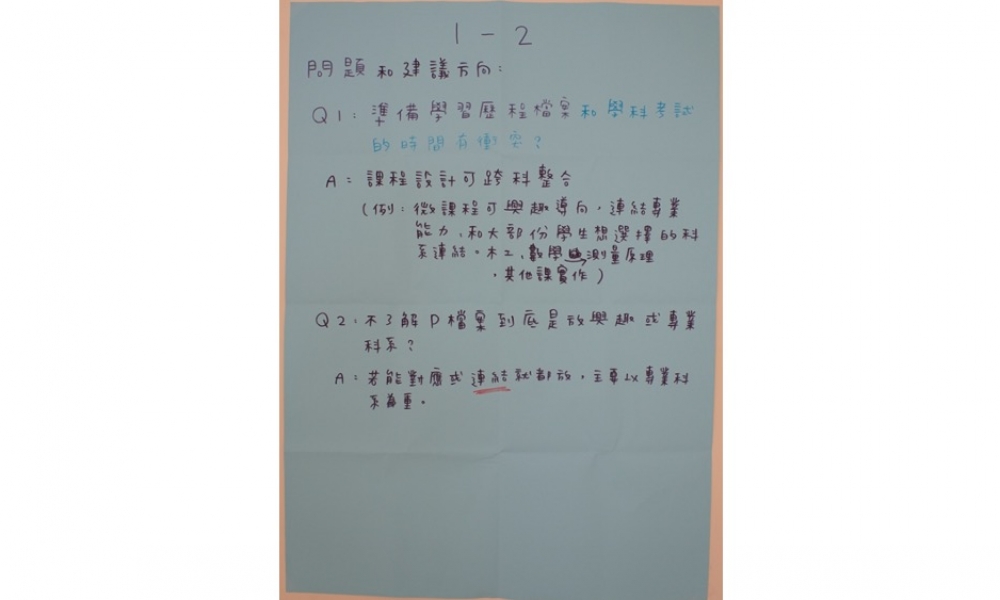 1-2
問題和建議方向:
Q1: 準備學習歷程檔案和學科考試
的時間有衝突?
A: 課程設計可跨科整合
(例: 微課程可興趣導向, 連結專業
能力, 和大部份學生想選擇的科
系連結。木工、數學 測量原理
.其他課實作)
Q2: 不了解P檔案到底是放興趣或專業
科系?
A: 若能對應或連結就都放, 主要以專業科
系為重。